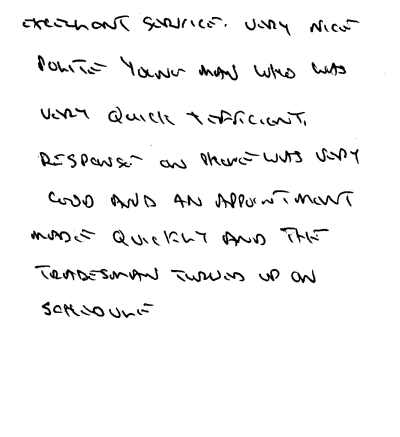 EXCELLENT SERVICE. VERY NICE
POLITE YOUNG MAN WHO WAS
VERY QUICK + EFFICIENT.
RESPONSE ON PHONE WAS VERY
GOOD AND AN APPOINTMENT
MADE QUICKLY AND THE
TRADESMAN TURNED UP ON
SCHEDULE